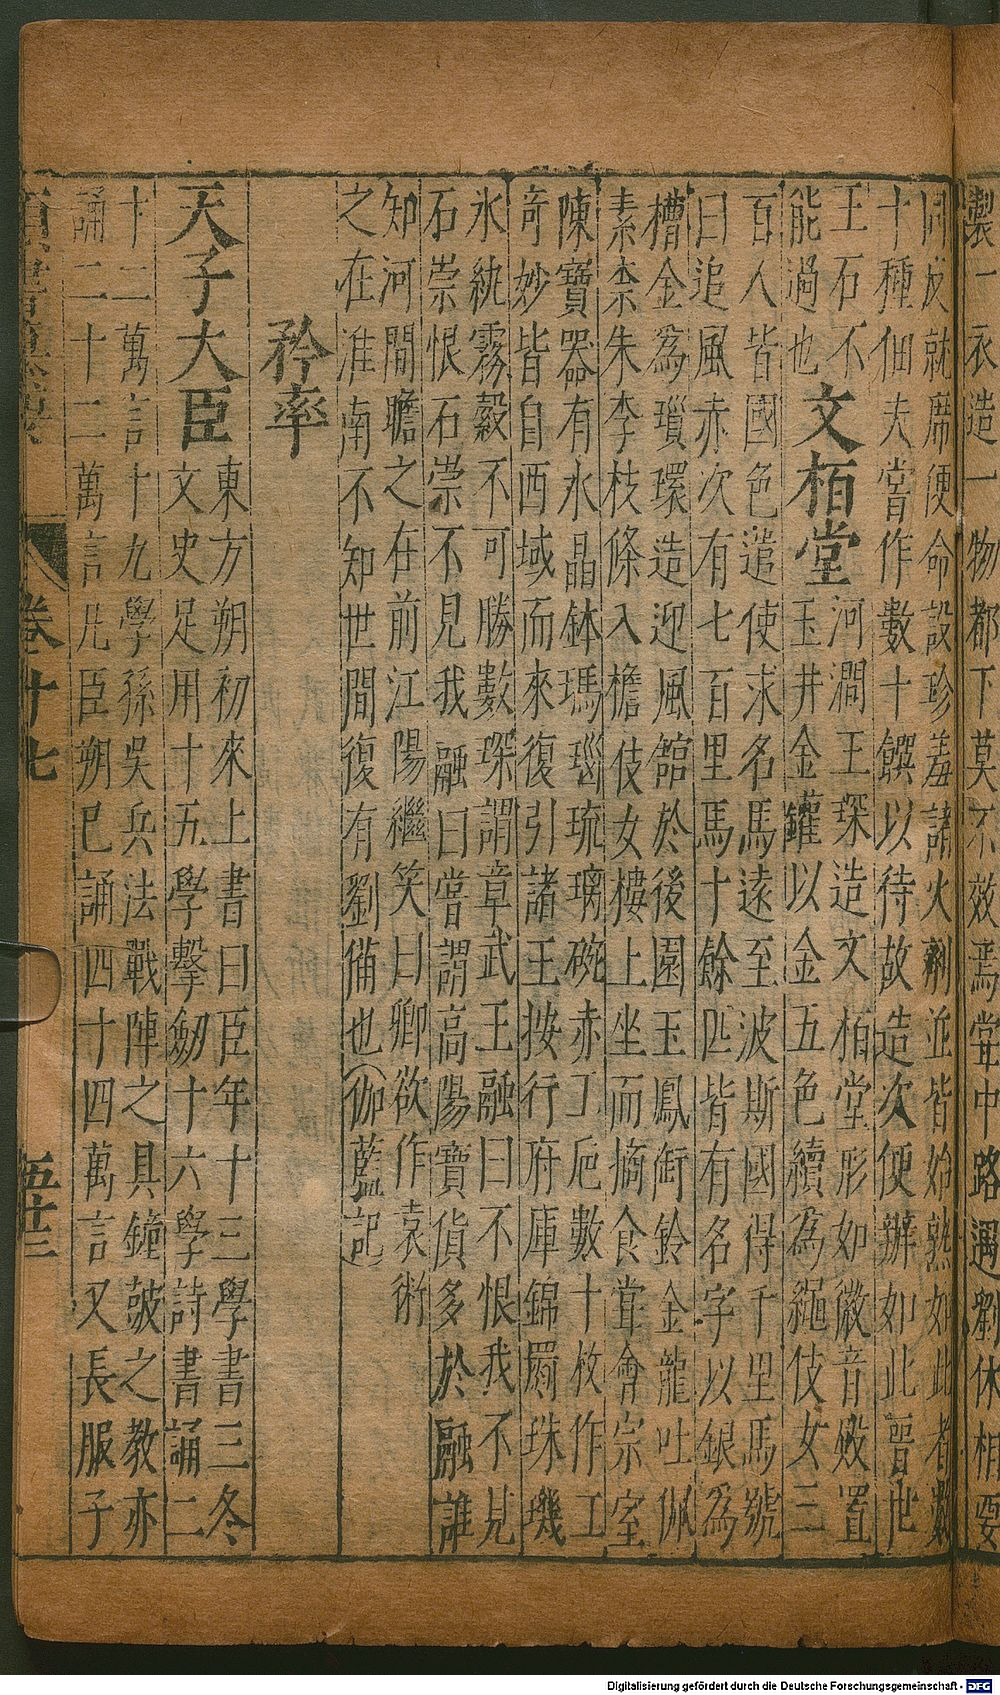 製一衣造一物都下莫不效焉甞中路遇劉休相要
同反就席便命設珍羞諸火劑並皆始熟如此者數
十種佃夫甞作數十饌以待故造次便辦如此晉世
王石不
能過也
文栢堂
河澗王琛造文柏堂形如徽音殿置
玉井金罐以金五色續為繩伎女三
百人皆國色遣使求名馬遠至波斯國得千里馬號
曰追風赤次有七百里馬十餘匹皆有名字以銀為
槽金為瑣環造迎風舘於後園玉鳳銜鈴金龍吐佩
素柰朱李枝條入檐伎女樓上坐而摘食甞會宗室
陳寶器有水晶鉢瑪瑙琉璃碗赤丁巵數十枚作工
奇妙皆自西域而來復引諸王按行府庫錦罽珠璣
氷紈霧縠不可勝數琛謂章武王融曰不恨我不見
石崇恨石崇不見我融曰甞謂高陽寶貨多於融誰
知河間瞻之在前江陽繼笑曰卿欲作袁術
之在淮南不知世間復有劉備也(伽藍記)
矜率
天子大臣
東方朔初來上書曰臣年十三學書三冬
文史足用十五學擊劒十六學詩書誦二
十二萬言十九學孫吳兵法戰陣之具鐃皷之教亦
誦二十二萬言凡臣朔已誦四十四萬言又長服子
卷十七
五十三
Digitalisierung gefördert durch die Deutsche Forschungsgemeinschaft - DFG